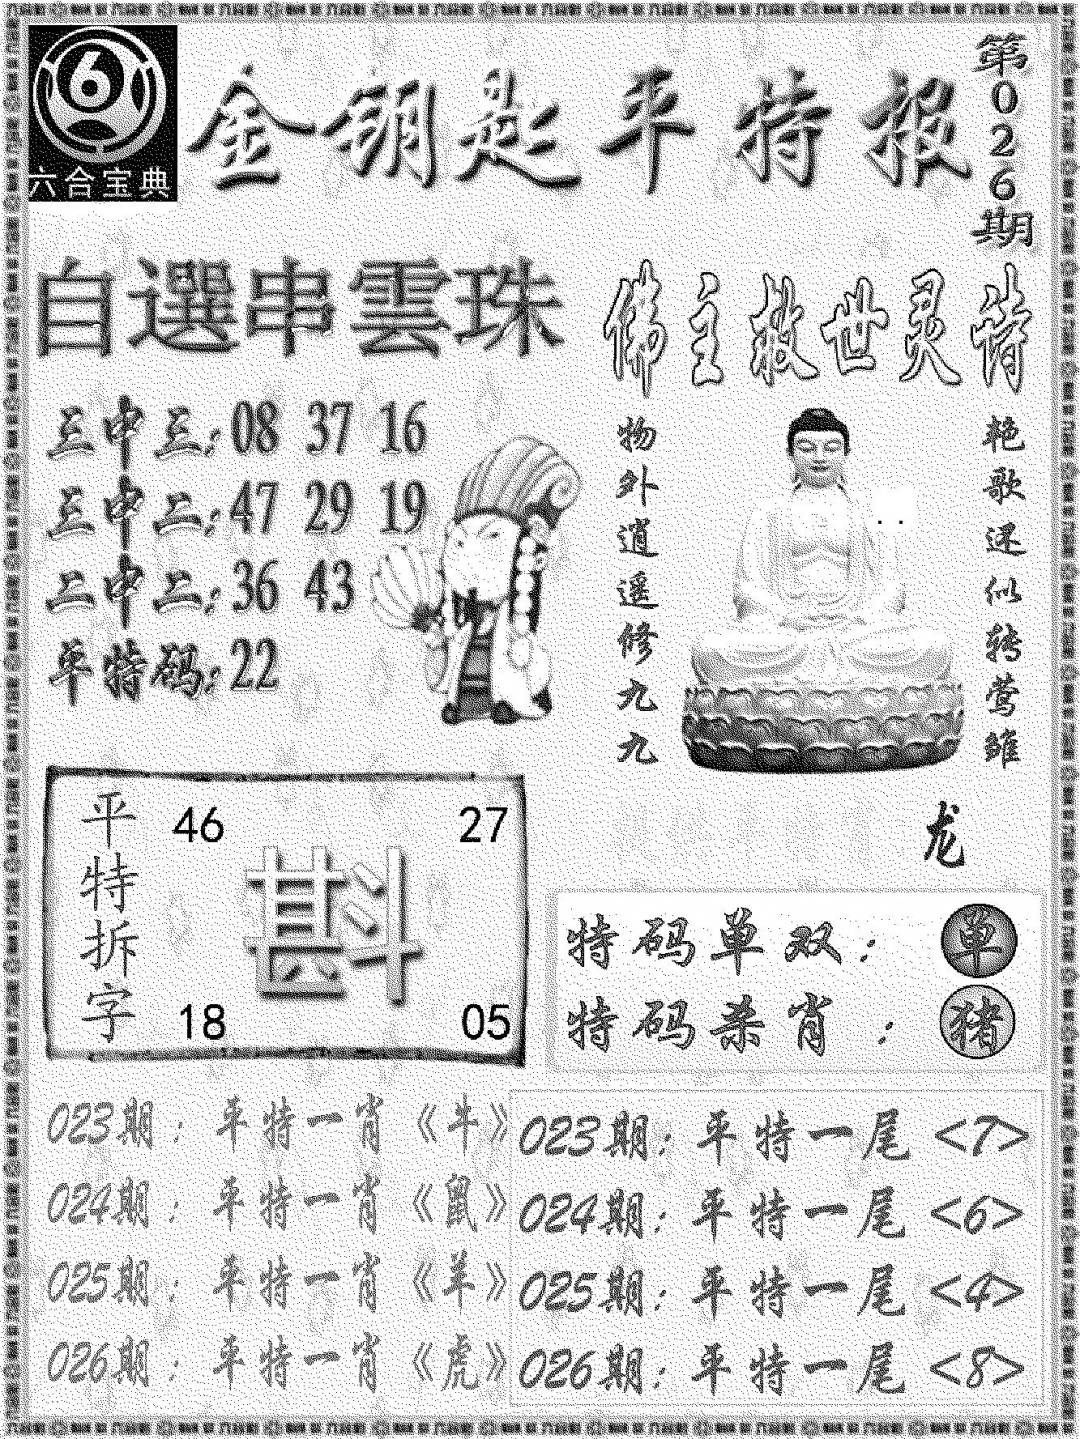 六合宝典
金钥匙平特报
第026期
自選串雲珠
三中三：08 37 16
三中二：47 29 19
二中二：36 43
平特码：22
佛主救世灵诗
物外逍遥修九九
艳歌还似转莺雏
龙
平特拆字
46 27
斟
18 05
特码单双：单
特码杀肖：猪
023期：平特一肖《牛》
024期：平特一肖《鼠》
025期：平特一肖《羊》
026期：平特一肖《虎》
023期：平特一尾<7>
024期：平特一尾<6>
025期：平特一尾<4>
026期：平特一尾<8>